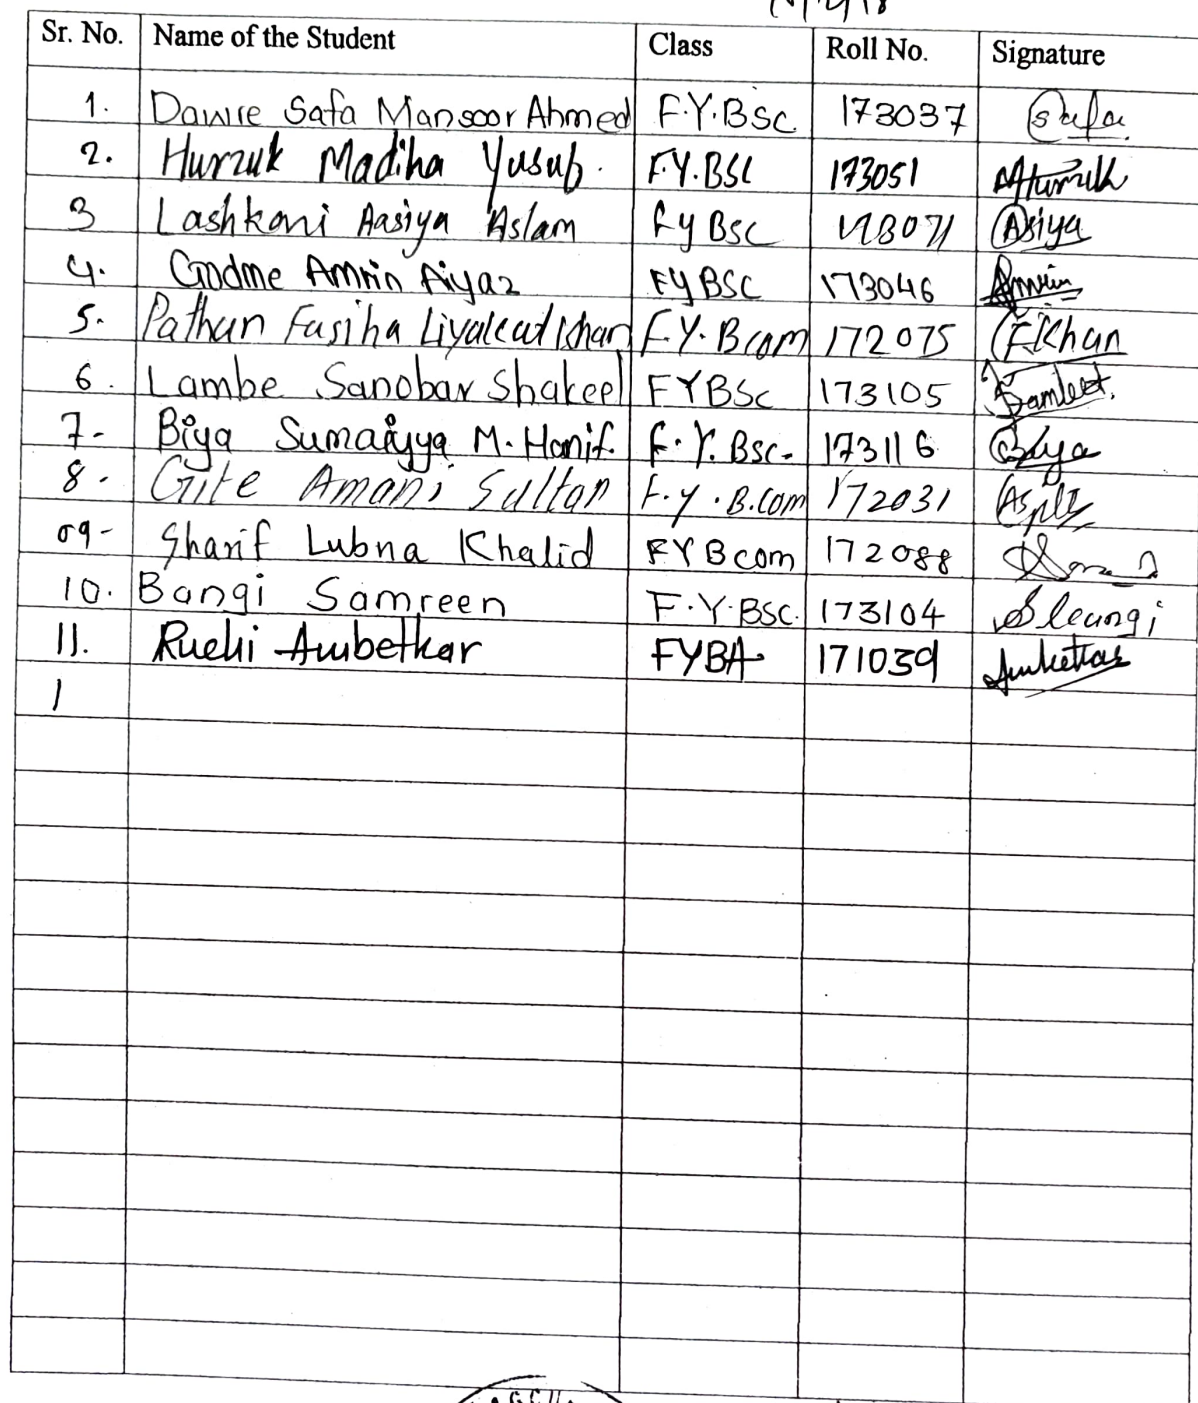 Sr. No. Name of the Student Class Roll No. Signature
1. Dawre Safa Mansoor Ahmed F.Y.BSc. 173037 Safa
2. Hurzuk Madiha Yusub. F.Y.BSc 173051 AHurzuk
3 Lashkani Aasiya Aslam Fy BSc 173071 Asiya
4. Godme Amrin Aiyaz FYBSC 173046 Amrin
5. Pathan Fasiha Liyakcut Khan F.Y.Bcom 172075 FKhan
6. Lambe Sanobar Shakeel FYBSc 173105
7- Biya Sumaiyya M. Hanif. F.Y.Bsc. 173116 Biya
8. Gite Amani Sultan F.y.B.com 172031
09- Sharif Lubna Khalid FYBcom 172088
10. Bangi Samreen F.Y.BSC. 173104
11. Ruchi Ambetkar FYBA 171039 Ambetkar
1